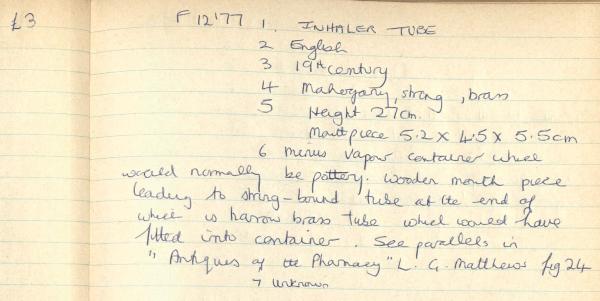 £3 F12'77 1. INHALER TUBE
2 English
3 19th century
4 Mahogany, string, brass
5 Height 27cm.
Mouthpiece 5.2 x 4.5 x 5.5cm
6 minus vapour container which
would normally be pottery. Wooden mouth piece
leading to string-bound tube at the end of
which is narrow brass tube which would have
fitted into container. See parallels in
"Antiques of the Pharmacy" L. G. Matthews fig 24
7 unknown